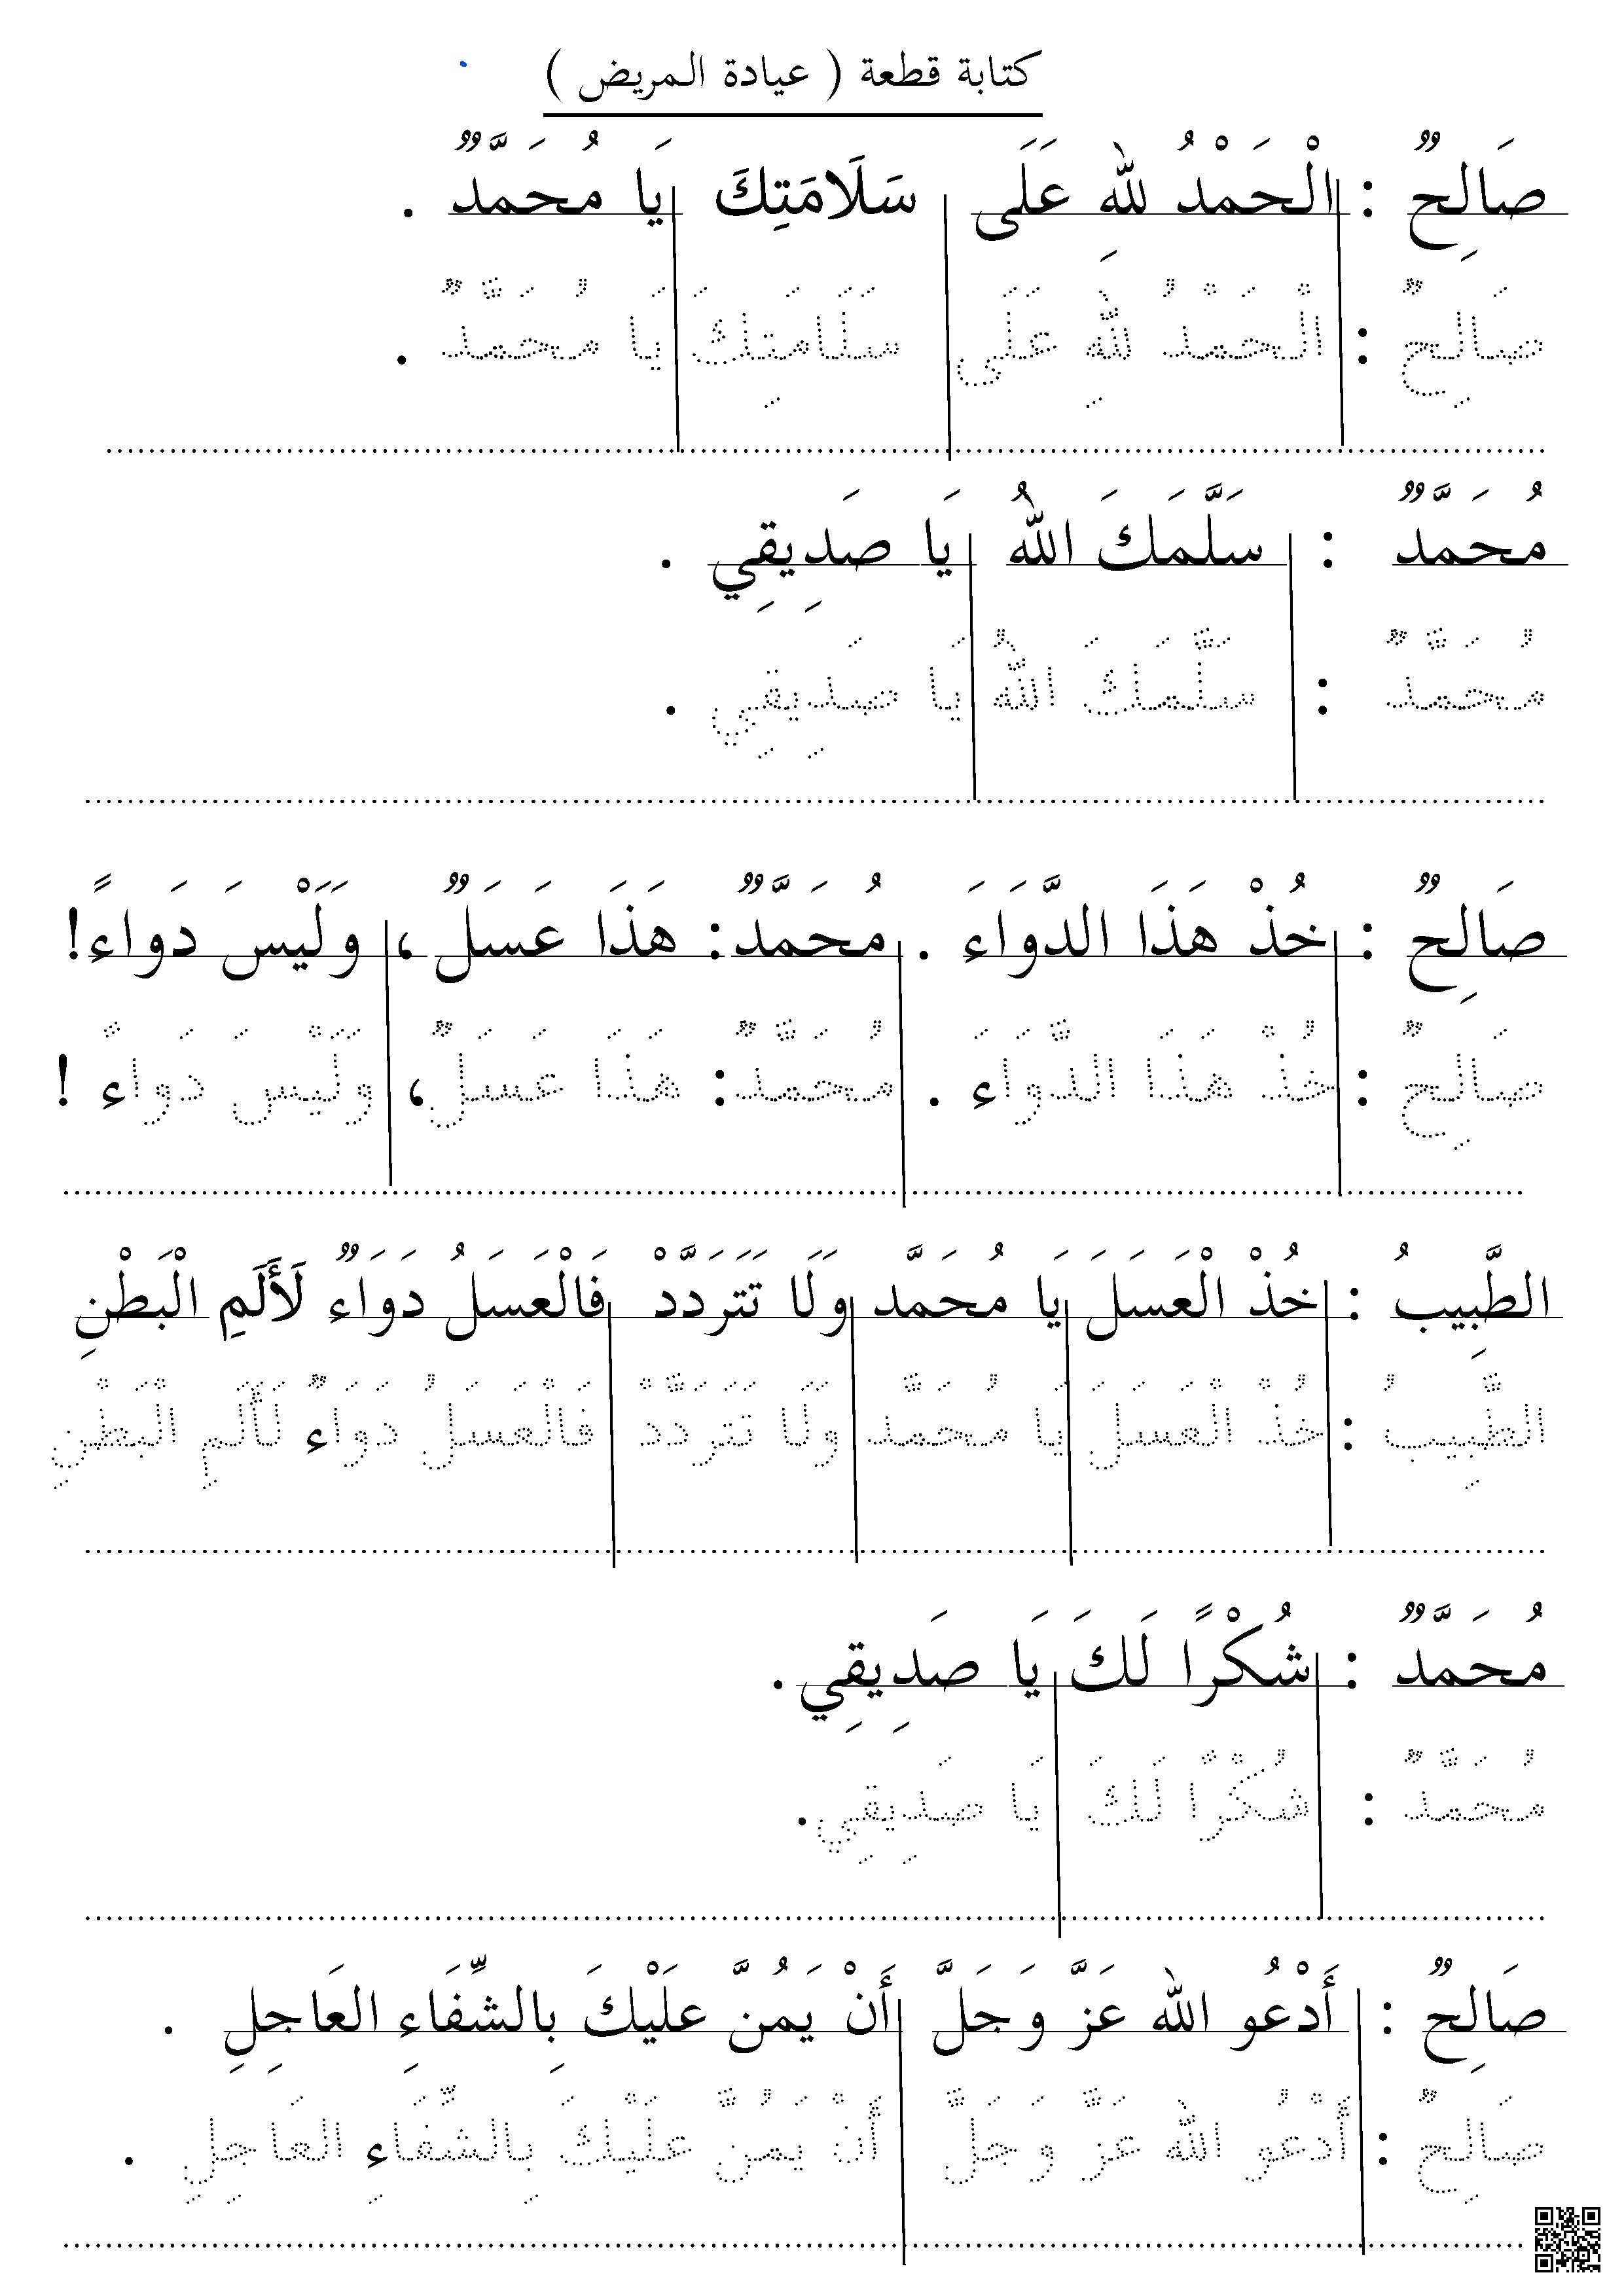 كتابة قطعة ( عيادة المريض )
صَالِحٌ : الْحَمْدُ للهِ عَلَى سَلَامَتِكَ يَا مُحَمَّدٌ .
صَالِحٌ : الْحَمْدُ للهِ عَلَى سَلَامَتِكَ يَا مُحَمَّدٌ .
مُحَمَّدٌ : سَلَّمَكَ اللهُ يَا صَدِيقِي .
مُحَمَّدٌ : سَلَّمَكَ اللهُ يَا صَدِيقِي .
صَالِحٌ : خُذْ هَذَا الدَّوَاءَ . مُحَمَّدٌ: هَذَا عَسَلٌ ، وَلَيْسَ دَواءً!
صَالِحٌ : خُذْ هَذَا الدَّوَاءَ . مُحَمَّدٌ: هَذَا عَسَلٌ، وَلَيْسَ دَواءً !
الطَّبِيبُ : خُذْ الْعَسَلَ يَا مُحَمَّد وَلَا تَتَرَدَّدْ فَالْعَسَلُ دَوَاءٌ لَأَلَمِ الْبَطْنِ
الطَّبِيبُ : خُذْ الْعَسَلَ يَا مُحَمَّد وَلَا تَتَرَدَّدْ فَالْعَسَلُ دَوَاءٌ لَأَلَمِ الْبَطْنِ
مُحَمَّدٌ : شُكْرًا لَكَ يَا صَدِيقِي.
مُحَمَّدٌ : شُكْرًا لَكَ يَا صَدِيقِي.
صَالِحٌ : أَدْعُو الله عَزَّ وَجَلَّ أَنْ يَمُنَّ عَلَيْكَ بِالشِّفَاءِ العَاجِلِ .
صَالِحٌ : أَدْعُو الله عَزَّ وَجَلَّ أَنْ يَمُنَّ عَلَيْكَ بِالشِّفَاءِ العَاجِلِ .